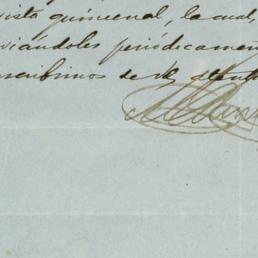 vista quincenal, la cual,
viándoles periódicamen
scribimos de V. atento